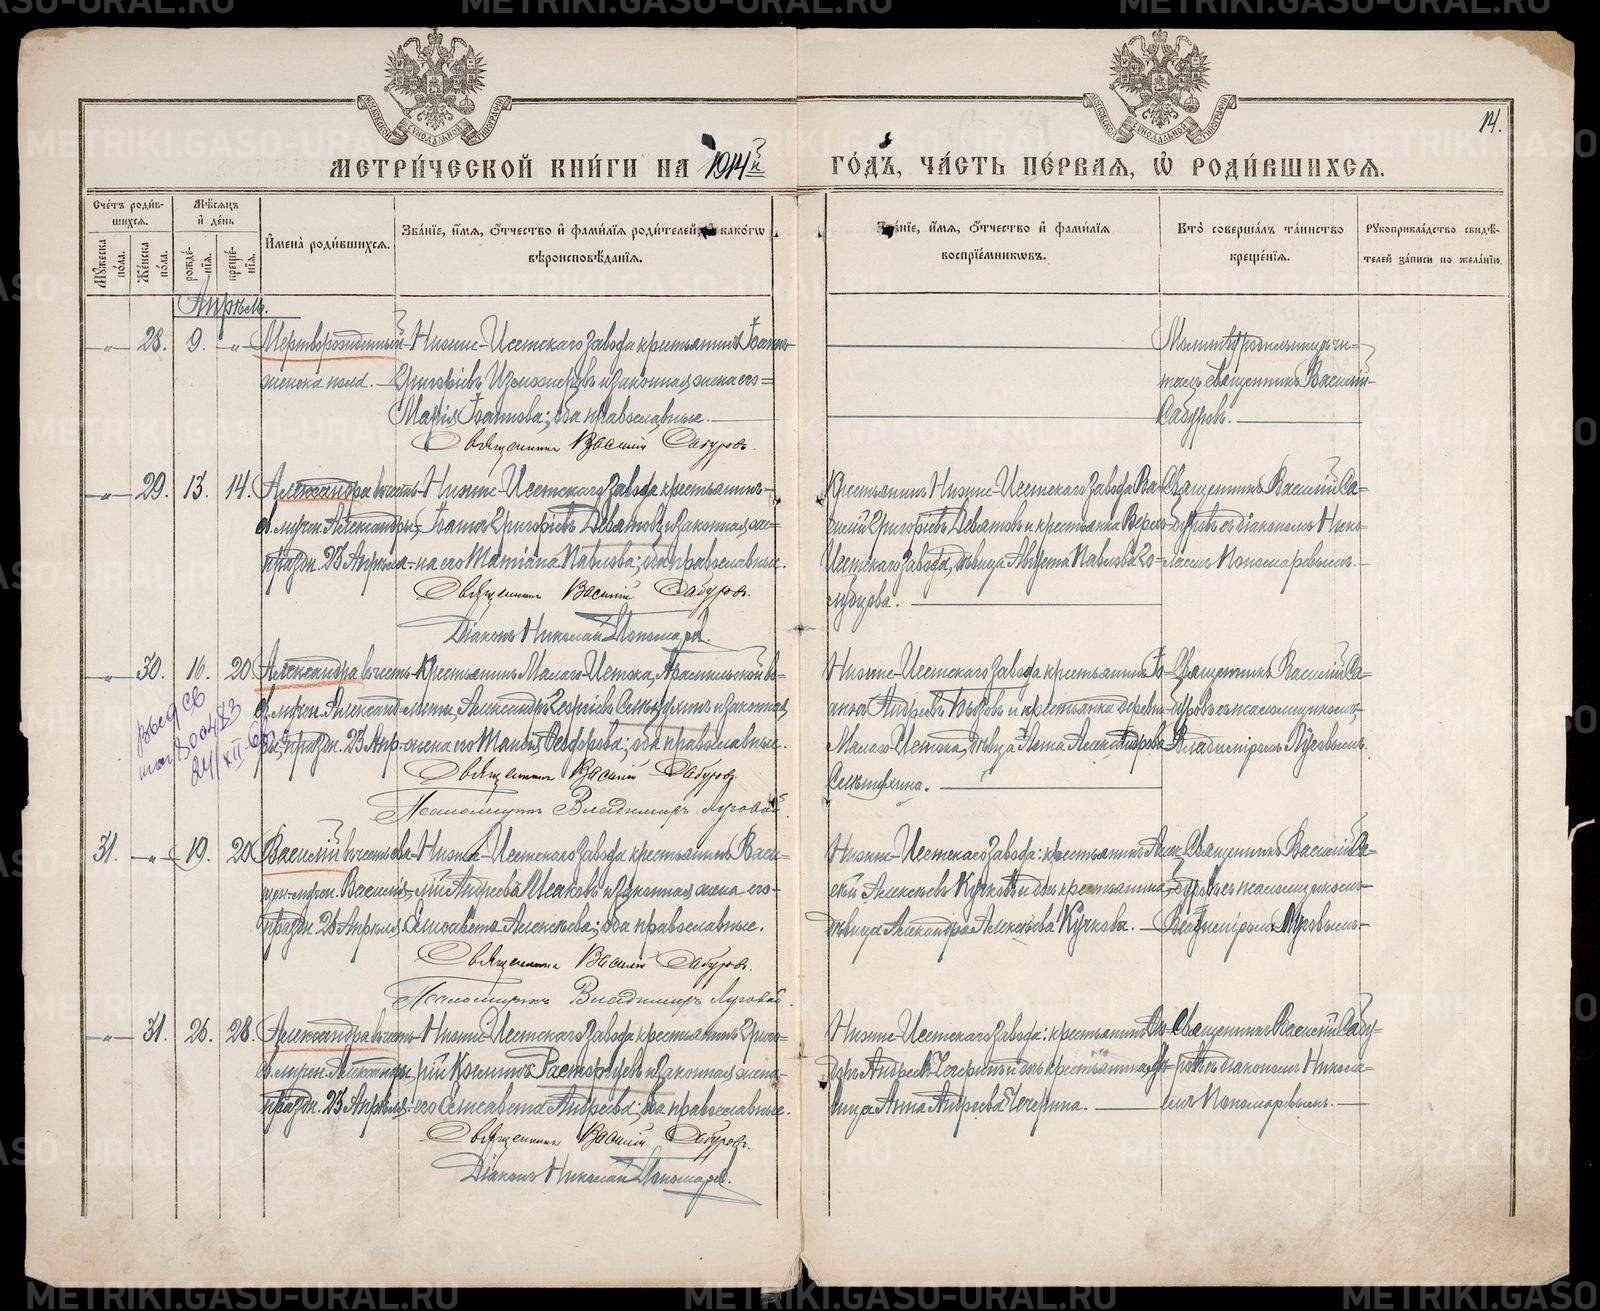 МЕТРИ́ЧЕСКОЙ КНИ́ГИ НА 1914й
ГО́ДЪ, ЧА́СТЬ ПЕ́РВАЯ, Ѽ РОДИ́ВШИХСЯ.
14.
Сче́тъ роди́в-
шихся.
Мѣ́сяцъ
и҆ де́нь
Му́жеска по́ла.
Же́нска по́ла.
рожде́-
нїя.
креще́-
нїя.
И҆мена̀ роди́вшихся.
Зва́нїе, и҆́мя, ѻ҆́тчество и҆ фами́лїя роди́телей, и҆ како́гѡ
вѣроисповѣ́данїя.
Зва́нїе, и҆́мя, ѻ҆́тчество и҆ фами́лїя
воспрїе́мниковъ.
Кто̀ соверша́лъ та́инство
креще́нїя.
Рукоприкла́дство свидѣ́-
телей за́писи по жела́нїю.
Апрѣль.
28. 9. Мертворожденный Нижне-Исетскаго завода крестьянинъ Іоаннъ
женска пола. Григоріевъ и законная жена его
Марія Іоаннова; оба православные.
Священникъ Василій Сабуровъ.
Молитв. родильницѣ чи-
талъ Священникъ Василій
Сабуровъ.
29. 13. 14. Александра въ честь Нижне-Исетскаго завода крестьянинъ
св. мучен. Александры, Іоаннъ Григоріевъ Девятовъ и законная же-
праздн. 23 Апрѣля. на его Татіана Павлова; оба православные.
Священникъ Василій Сабуровъ.
Діаконъ Николай Пономаревъ.
Крестьянинъ Нижне-Исетскаго завода Ва-
силій Григоріевъ Девятовъ и крестьянка Верхъ-
Исетскаго завода, дѣвица Августа Павлова Го-
лубцова.
Священникъ Василій Са-
буровъ съ діакономъ Нико-
лаемъ Пономаревымъ.
30. 16. 20 Александра въ честь Крестьянинъ Малаго-Истока, Арамильской во-
св. мучен. Александ- лости, Александръ Георгіевъ и законная
ры, праздн. 23 Апр. жена его Таисія Ѳеодорова; оба православные.
Священникъ Василій Сабуровъ.
Псаломщикъ Владимиръ Луговой.
выд св
24/XII-
Нижне-Исетскаго завода крестьянинъ Іо-
аннъ Андреевъ и крестьянка деревни
Малаго-Истока, дѣвица Анна Александрова
Священникъ Василій Са-
буровъ съ псаломщикомъ
Владиміромъ Луговымъ.
31. 19. 20 Василій въ честь св. Нижне-Исетскаго завода крестьянинъ Васи-
щен-мучен. Василія, лій Андреевъ Исаковъ и законная жена его
праздн. 26 Апрѣля. Елисавета Алексѣева; оба православные.
Священникъ Василій Сабуровъ.
Псаломщикъ Владимиръ Луговой.
Нижне-Исетскаго завода: крестьянинъ Алек-
сѣй Алексѣевъ Кучковъ и дочь крестьянина,
дѣвица Александра Алексѣева Кучкова.
Священникъ Василій Са-
буровъ съ псаломщикомъ
Владиміромъ Луговымъ.
31. 26. 28. Александра въ честь Нижне-Исетскаго завода крестьянинъ Григо-
св. мучен. Александры, рій Косьминъ Расторгуевъ и законная жена
праздн. 23 Апрѣля. его Елисавета Андреева; оба православные.
Священникъ Василій Сабуровъ.
Діаконъ Николай Пономаревъ.
Нижне-Исетскаго завода: крестьянинъ Ѳео-
доръ Андреевъ Чечеринъ и дочь крестьянина, дѣ-
вица Анна Андреева Чечерина.
Священникъ Василій Сабу-
ровъ съ діакономъ Никола-
емъ Пономаревымъ.